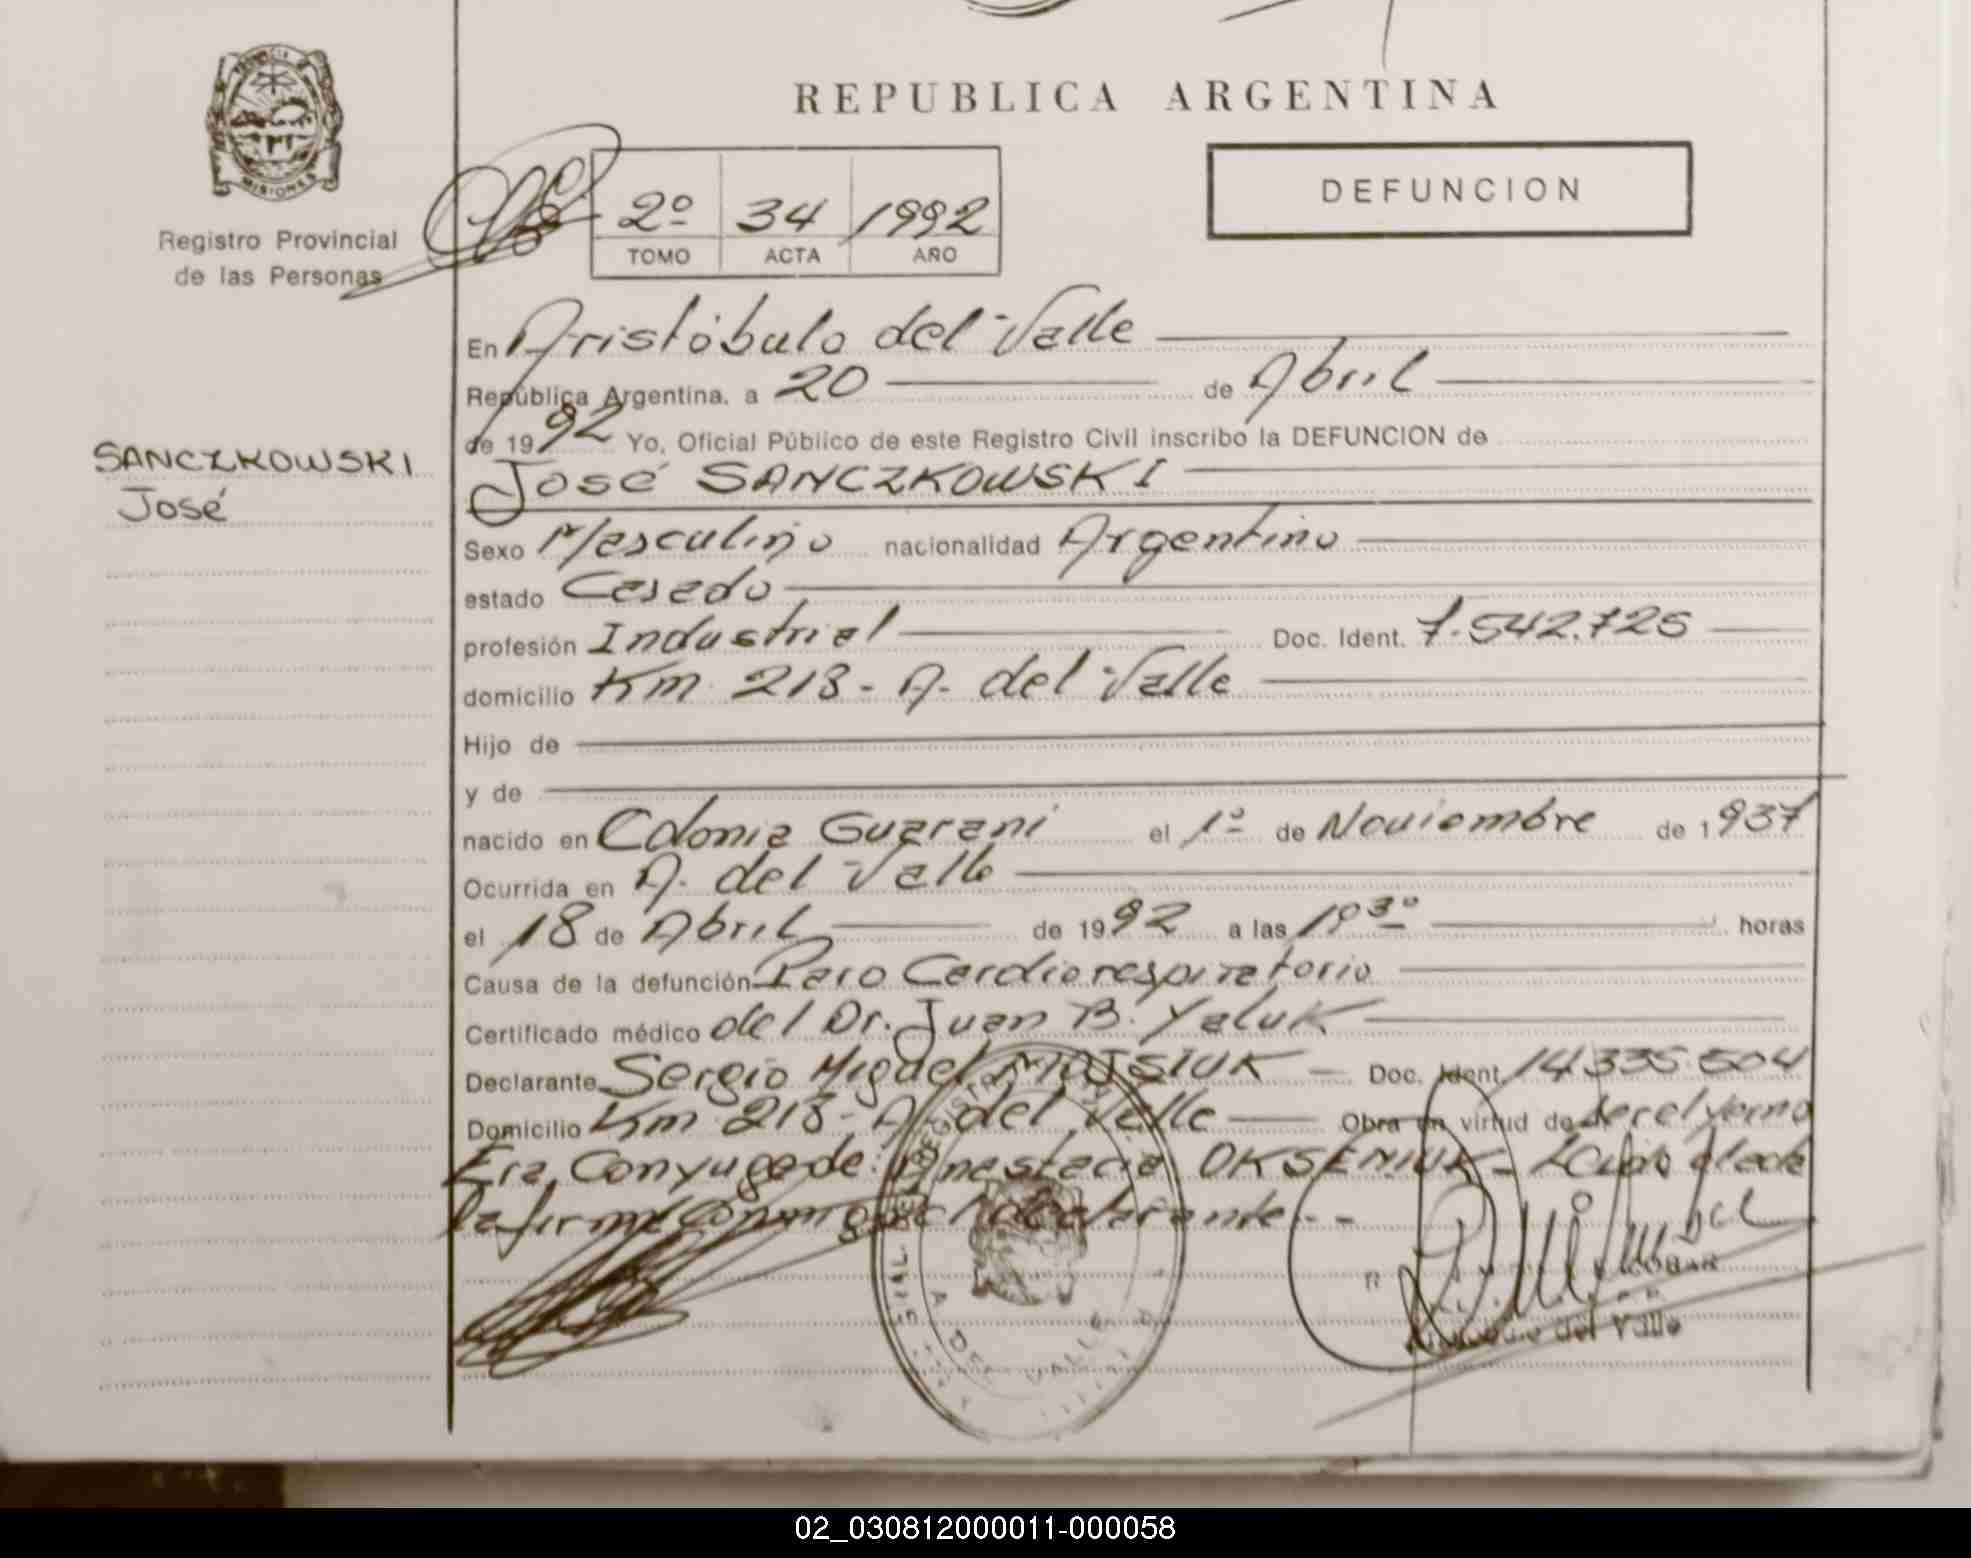 REPUBLICA ARGENTINA
MISIONES
Registro Provincial
de las Personas
2º 34 1992
TOMO ACTA AÑO
DEFUNCION
En Aristóbulo del Valle
República Argentina, a 20 de Abril
de 1992 Yo, Oficial Público de este Registro Civil inscribo la DEFUNCION de
SANCZKOWSKI
José
José SANCZKOWSKI
Sexo Masculino nacionalidad Argentino
estado Casado
profesión Industrial Doc. Ident. 7.542.725
domicilio Km 213- A. del Valle
Hijo de
y de
nacido en Colonia Guarani el 1º de Noviembre de 1937
Ocurrida en A. del Valle
el 18 de Abril de 1992 a las horas
Causa de la defunción Paro Cardiorespiratorio
Certificado médico del Dr. Juan B. Yaluk
Declarante Sergio Miguel MOJSIUK - Doc. Ident. 14.335.504
Domicilio Km 213- A. del Valle Obra en virtud de ser el yerno
Era Conyuge de: Anastacia OKSENIUK-
la firma Conmigo el declarante.--
DEL VALLE
del Valle
02_030812000011-000058